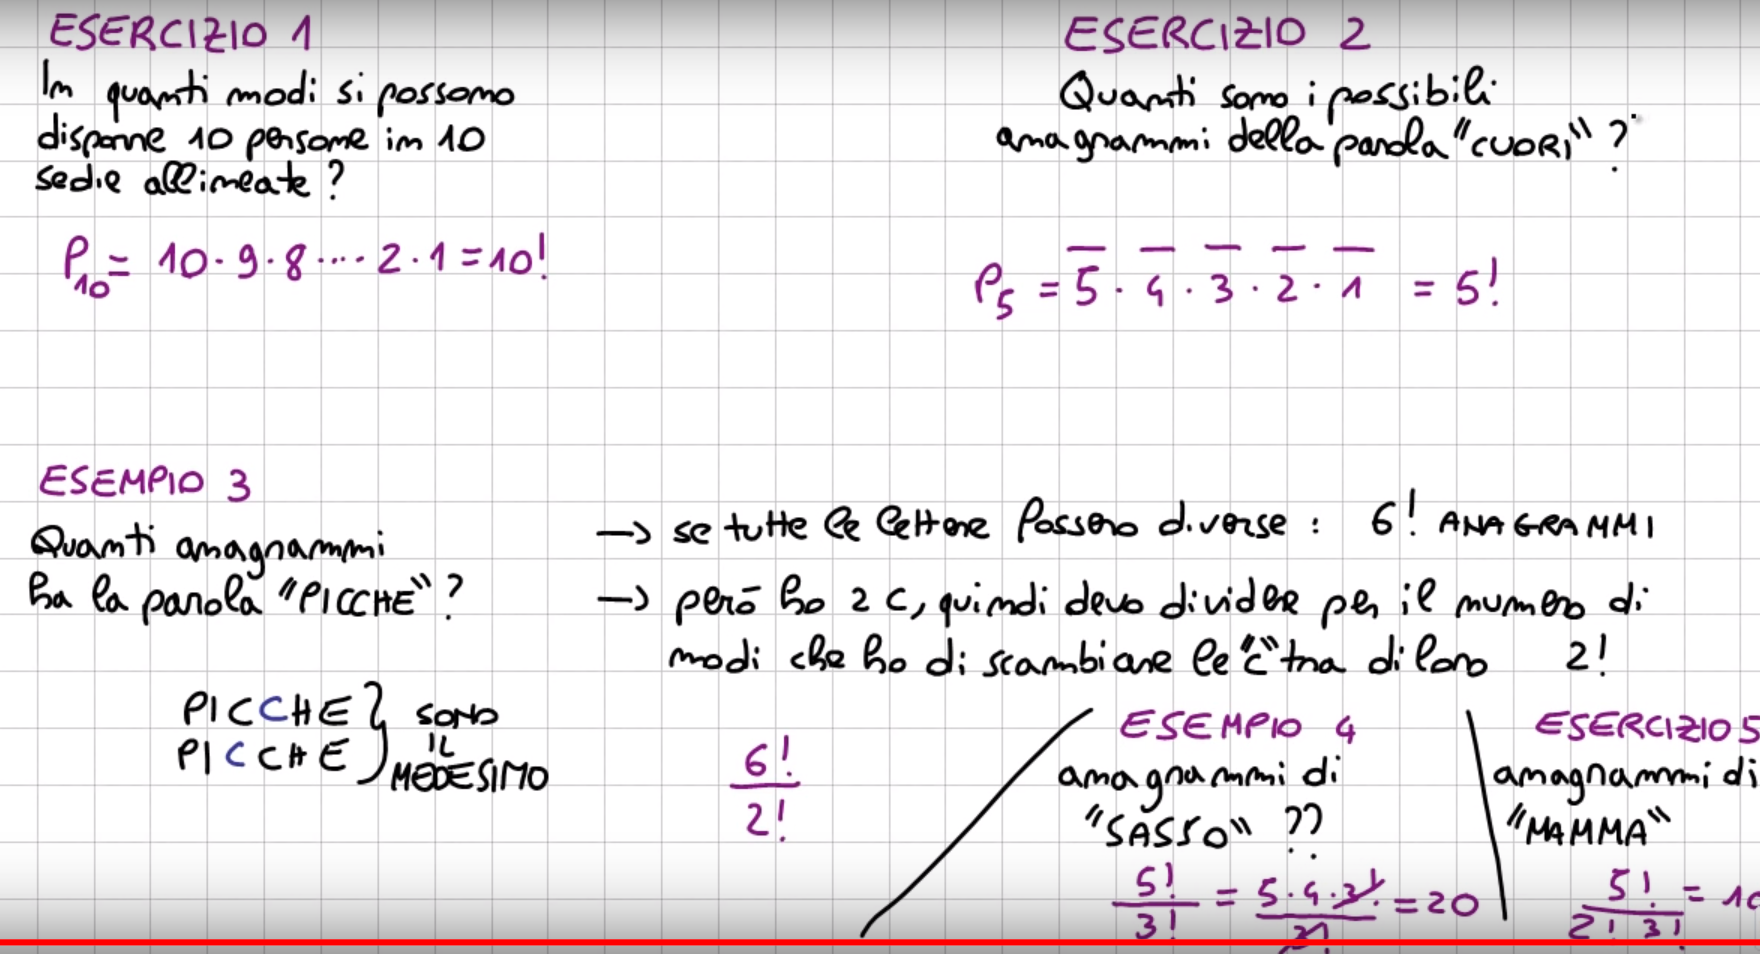 ESERCIZIO 1
In quanti modi si possono
disporre 10 persone in 10
sedie allineate?
P₁₀ = 10 · 9 · 8 ···· 2 · 1 = 10!
ESERCIZIO 2
Quanti sono i possibili
anagrammi della parola "CUORI"?
P₅ = 5 · 4 · 3 · 2 · 1 = 5!
ESEMPIO 3
Quanti anagrammi
ha la parola "PICCHE"?
PICCHE } SONO
PICCHE } IL
MEDESIMO
→ se tutte le lettere fossero diverse : 6! ANAGRAMMI
→ però ho 2 C, quindi devo dividere per il numero di
modi che ho di scambiare le "C" tra di loro 2!
6!
2!
ESEMPIO 4
anagrammi di
"SASSO" ??
5!/3! = 5·4·3!/3! = 20
ESERCIZIO 5
anagrammi di
"MAMMA"
5!/2! 3! = 10